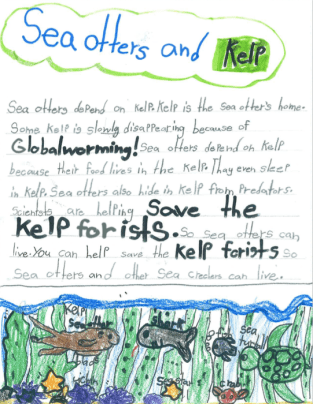 Sea otters and Kelp
Sea otters depend on kelp. Kelp is the sea otter's home.
Some kelp is slowly disappearing because of
Globalworming! Sea otters depend on kelp
because their food lives in the kelp. They even sleep
in kelp. Sea otters also hide in kelp from predators.
Scientists are helping save the
Kelp forists. So sea otters can
live. You can help save the kelp forists so
sea otters and other sea creclers can live.
Kelp
sea otter
shark
sea turtle
crab